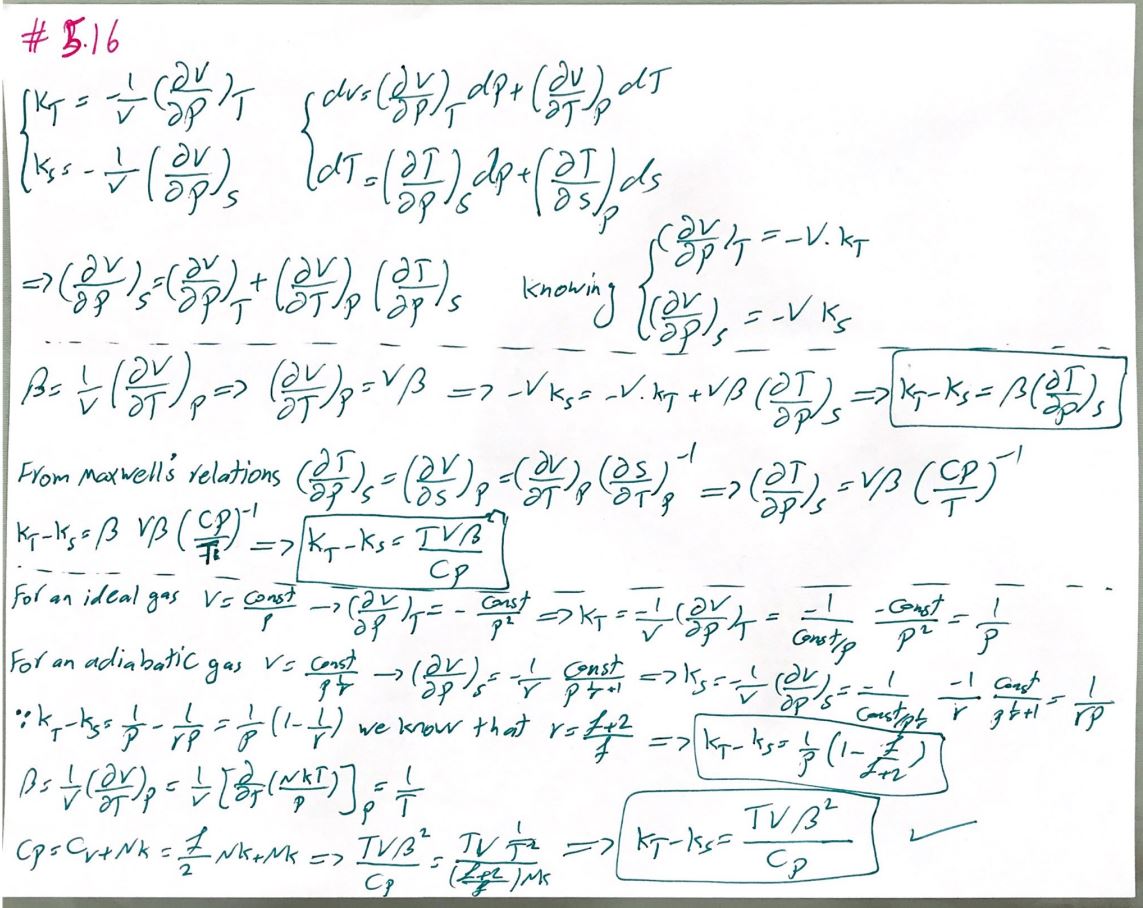 # 5.16
{ k_T = -1/V (∂V/∂P)_T   { dv = (∂V/∂P)_T dp + (∂V/∂T)_P dT
{ k_S = -1/V (∂V/∂P)_S   { dT = (∂T/∂P)_S dp + (∂T/∂S)_P ds
=> (∂V/∂P)_S = (∂V/∂P)_T + (∂V/∂T)_P (∂T/∂P)_S   knowing { (∂V/∂P)_T = -V. k_T
{ (∂V/∂P)_S = -V k_S
β = 1/V (∂V/∂T)_P => (∂V/∂T)_P = Vβ => -V k_S = -V. k_T + Vβ (∂T/∂P)_S => k_T - k_S = β (∂T/∂P)_S
From maxwell's relations (∂T/∂P)_S = (∂V/∂S)_P = (∂V/∂T)_P (∂S/∂T)_P^-1 => (∂T/∂P)_S = Vβ (CP/T)^-1
k_T - k_S = β Vβ (CP/T)^-1 => k_T - k_S = TVβ^2/CP
For an ideal gas V = const/P → (∂V/∂P)_T = - const/P^2 => k_T = -1/V (∂V/∂P)_T = -1/(const/P) -const/P^2 = 1/P
For an adiabatic gas V = const/P^(1/r) → (∂V/∂P)_S = -1/r const/P^(1/r+1) => k_S = -1/V (∂V/∂P)_S = -1/(const/P^(1/r)) -1/r const/P^(1/r+1) = 1/rP
∵ k_T - k_S = 1/P - 1/rP = 1/P (1 - 1/r) we know that r = f+2/f => k_T - k_S = 1/P (1 - f/f+2)
β = 1/V (∂V/∂T)_P = 1/V [∂/∂T (NkT/P)]_P = 1/T
CP = CV + Nk = f/2 Nk + Nk => TVβ^2/CP = TV 1/T^2 / (f+2/f) Nk => k_T - k_S = TVβ^2/CP ✓